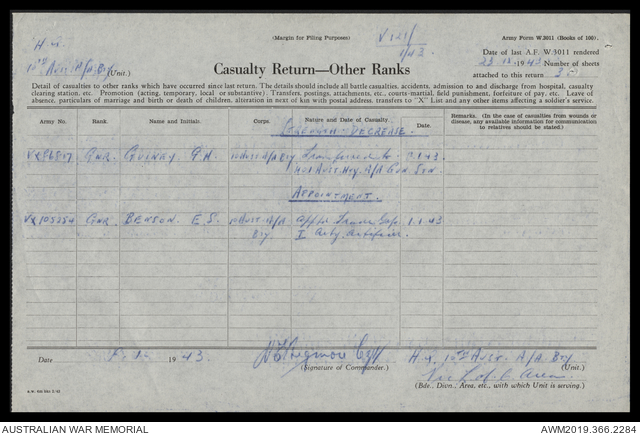 (Margin for Filing Purposes)
Army Form W.3011 (Books of 100).
V121/
1/43
H.Q.
10th Aust A/A Bty (Unit.)
Date of last A.F. W.3011 rendered
23 12 1943 Number of sheets
attached to this return
Casualty Return—Other Ranks
Detail of casualties to other ranks which have occurred since last return. The details should include all battle casualties, accidents, admission to and discharge from hospital, casualty
clearing station, etc. Promotion (acting, temporary, local or substantive). Transfers, postings, attachments, etc., courts-martial, field punishment, forfeiture of pay, etc. Leave of
absence, particulars of marriage and birth or death of children, alteration in next of kin with postal address, transfers to "X" List and any other items affecting a soldier's service.
Army No. Rank. Name and Initials. Corps. Nature and Date of Casualty. Date. Remarks. (In the case of casualties from wounds or
disease, any available information for communication
to relatives should be stated.)
STRENGTH DECREASE.
GNR. G.H. 10 Aust A/A Bty Transferred to 1.43
Aust Hvy. A/A Gun Stn
APPOINTMENT.
VX105254 GNR. BENSON. E.S. 10 Aust. A/A Appt 1.1.43
Bty.
Date 1943.
(Signature of Commander.)
H.Q. 10th Aust. A/A Bty
(Unit.)
Vic L of C Area
(Bde., Divn., Area, etc., with which Unit is serving.)
AUSTRALIAN WAR MEMORIAL
AWM2019.366.2284